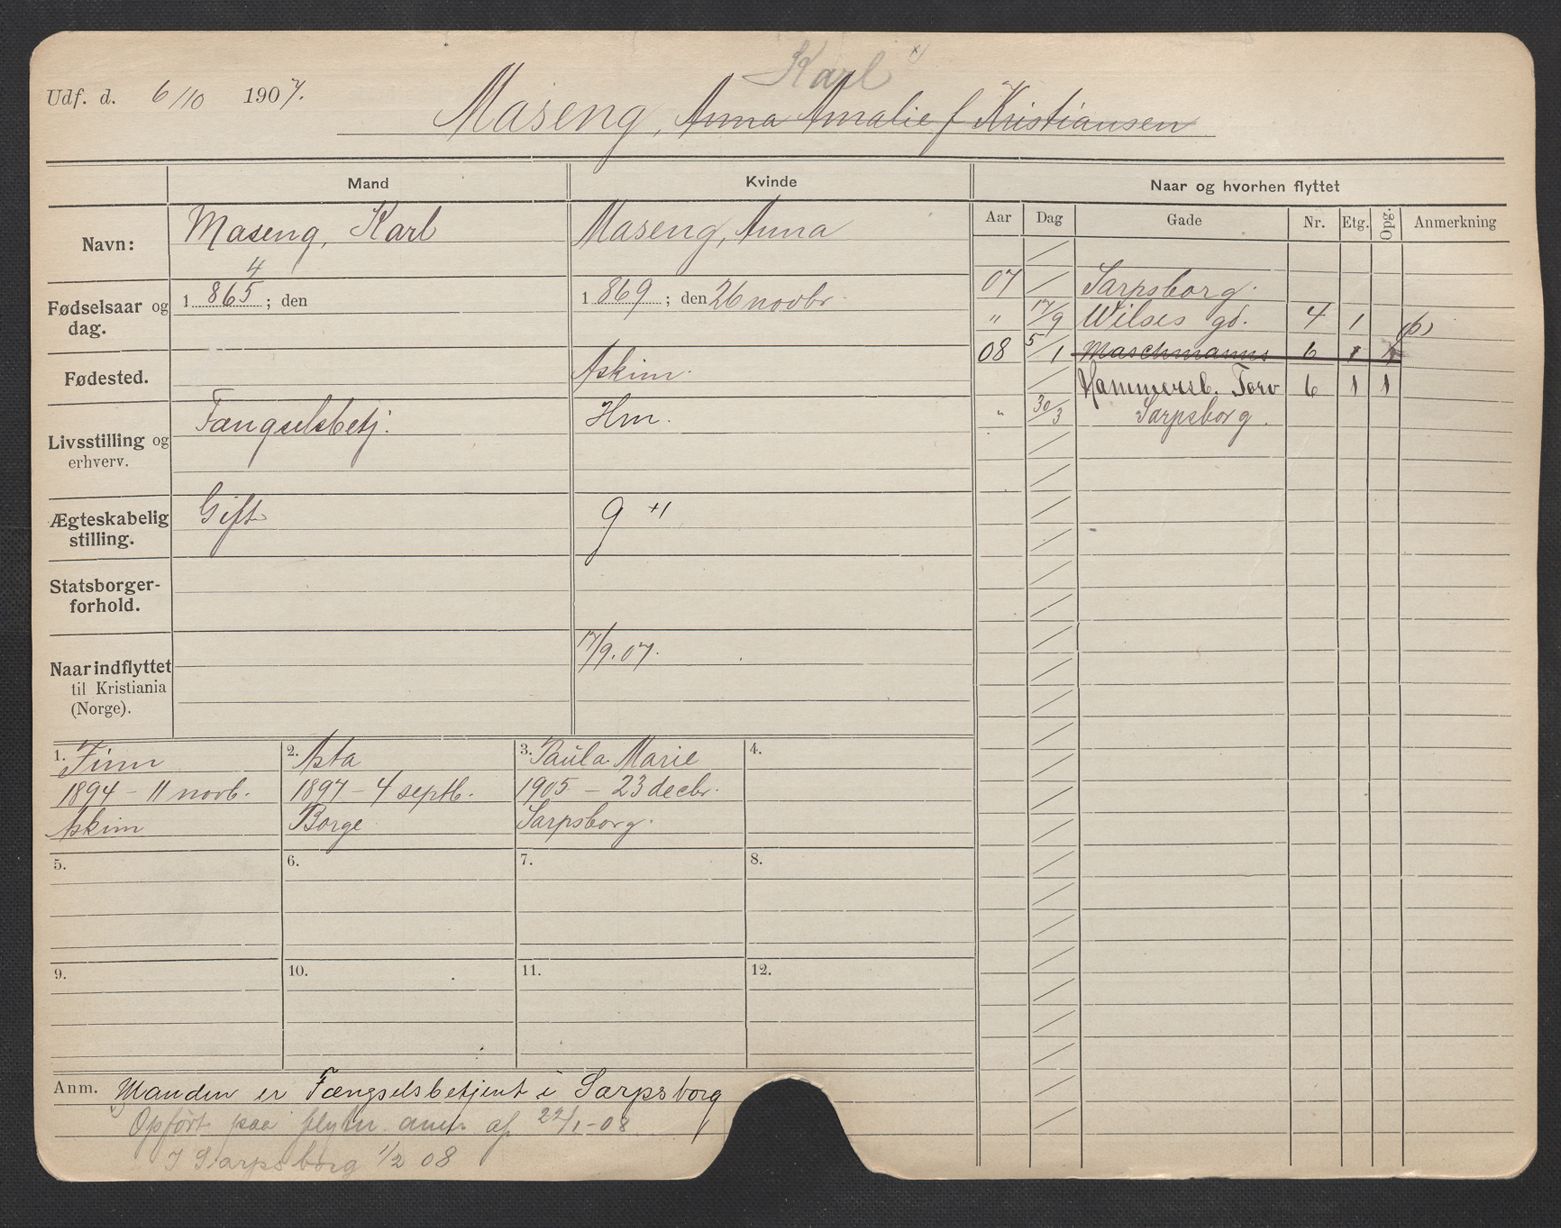 Karl x)
Udf. d. 6/10 1907.
Maseng, Anna Amalie f Kristiansen
Mand
Kvinde
Naar og hvorhen flyttet
Aar Dag Gade Nr. Etg. Opg. Anmerkning
Navn: Maseng, Karl
Maseng, Anna
4
Fødselsaar og dag. 1 865 ; den
1 869 ; den 26 novbr.
Fødested.
Askim.
Livsstilling og erhverv. Fængselsbetj.
Hm.
Ægteskabelig stilling. Gift
g +1
Statsborgerforhold.
Naar indflyttet til Kristiania (Norge).
17/9.07.
07 Sarpsborg.
" 17/9 Wilses gd. 4 1 (b)
08 5/1 Maschmanns 6 1
Hammersb. Torv 6 1 1
" 30/3 Sarpsborg.
1. Finn
1894 - 11 novb.
Askim
2. Asta
1897 - 4 septb.
Borge
3. Paula Marie
1905 - 23 decbr.
Sarpsborg.
4.
5.
6.
7.
8.
9.
10.
11.
12.
Anm. Manden er Fængselsbetjent i Sarpsborg
Opført paa flytn. anm af 22/1-08
I Sarpsborg 1/2 08